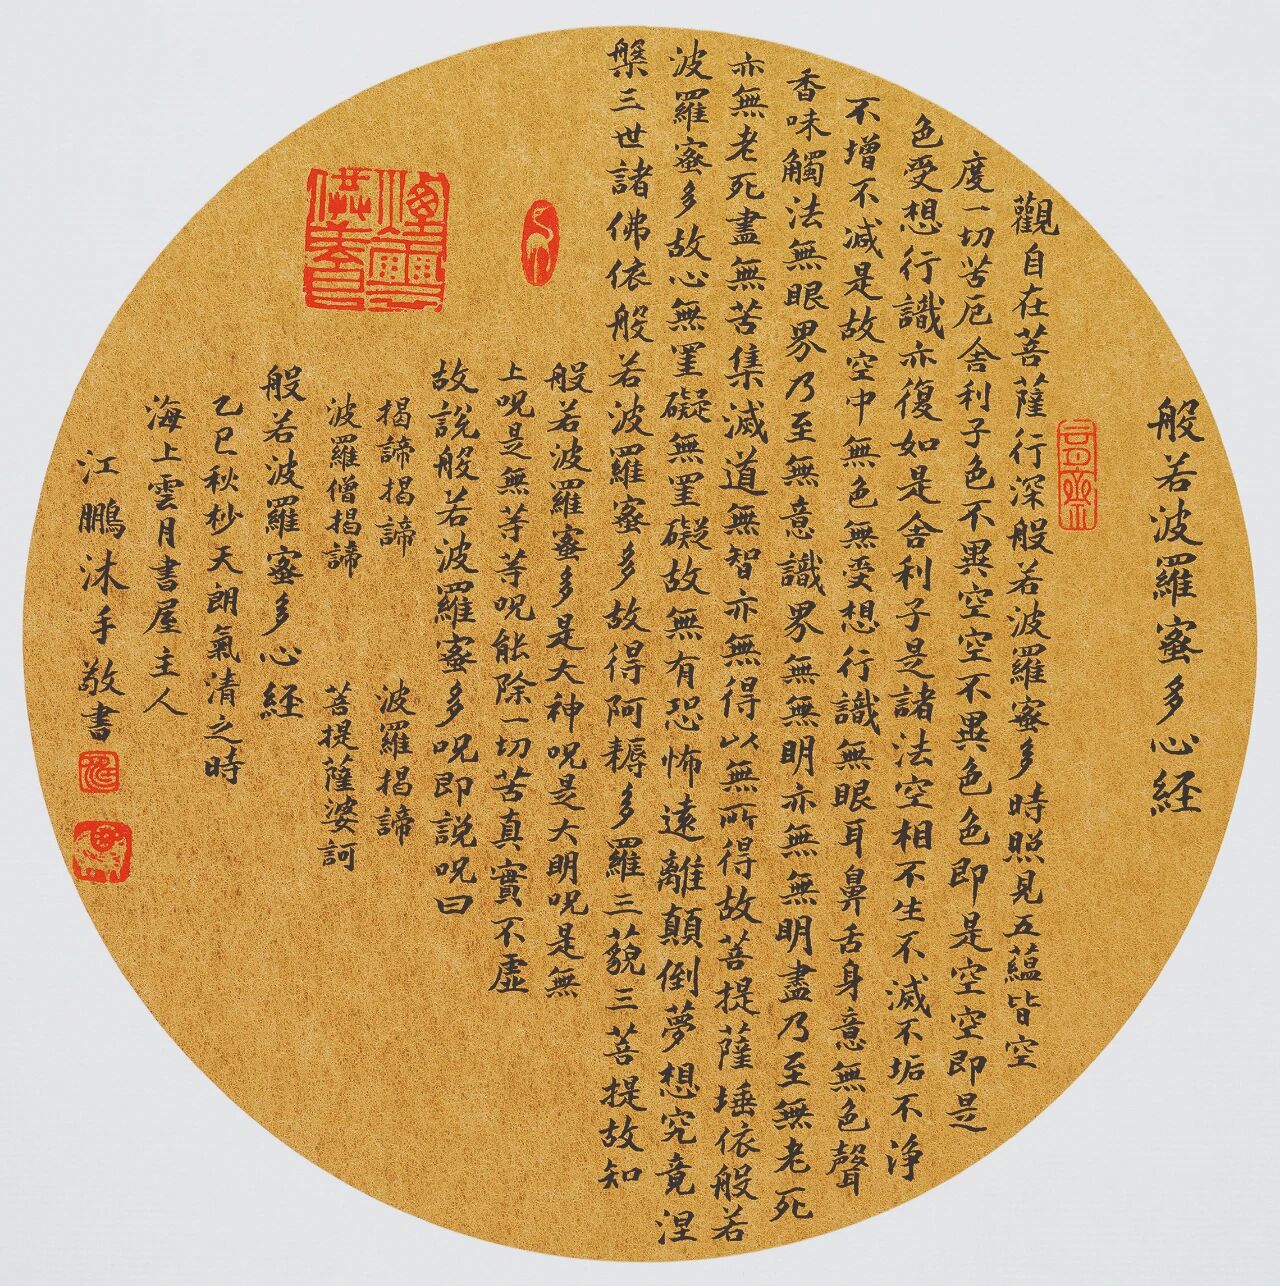 般若波羅蜜多心経
觀自在菩薩行深般若波羅蜜多時照見五蘊皆空
度一切苦厄舍利子色不異空空不異色色即是空空即是
色受想行識亦復如是舍利子是諸法空相不生不滅不垢不淨
不增不減是故空中無色無受想行識無眼耳鼻舌身意無色聲
香味觸法無眼界乃至無意識界無無明亦無無明盡乃至無老死
亦無老死盡無苦集滅道無智亦無得以無所得故菩提薩埵依般若
波羅蜜多故心無罣礙無罣礙故無有恐怖遠離顛倒夢想究竟涅
槃三世諸佛依般若波羅蜜多故得阿耨多羅三藐三菩提故知
般若波羅蜜多是大神呪是大明呪是無
上呪是無等等呪能除一切苦真實不虛
故說般若波羅蜜多呪即說呪曰
揭諦揭諦 波羅揭諦
波羅僧揭諦 菩提薩婆訶
般若波羅蜜多心経
乙巳秋杪天朗氣清之時
海上雲月書屋主人
江鵬沐手敬書